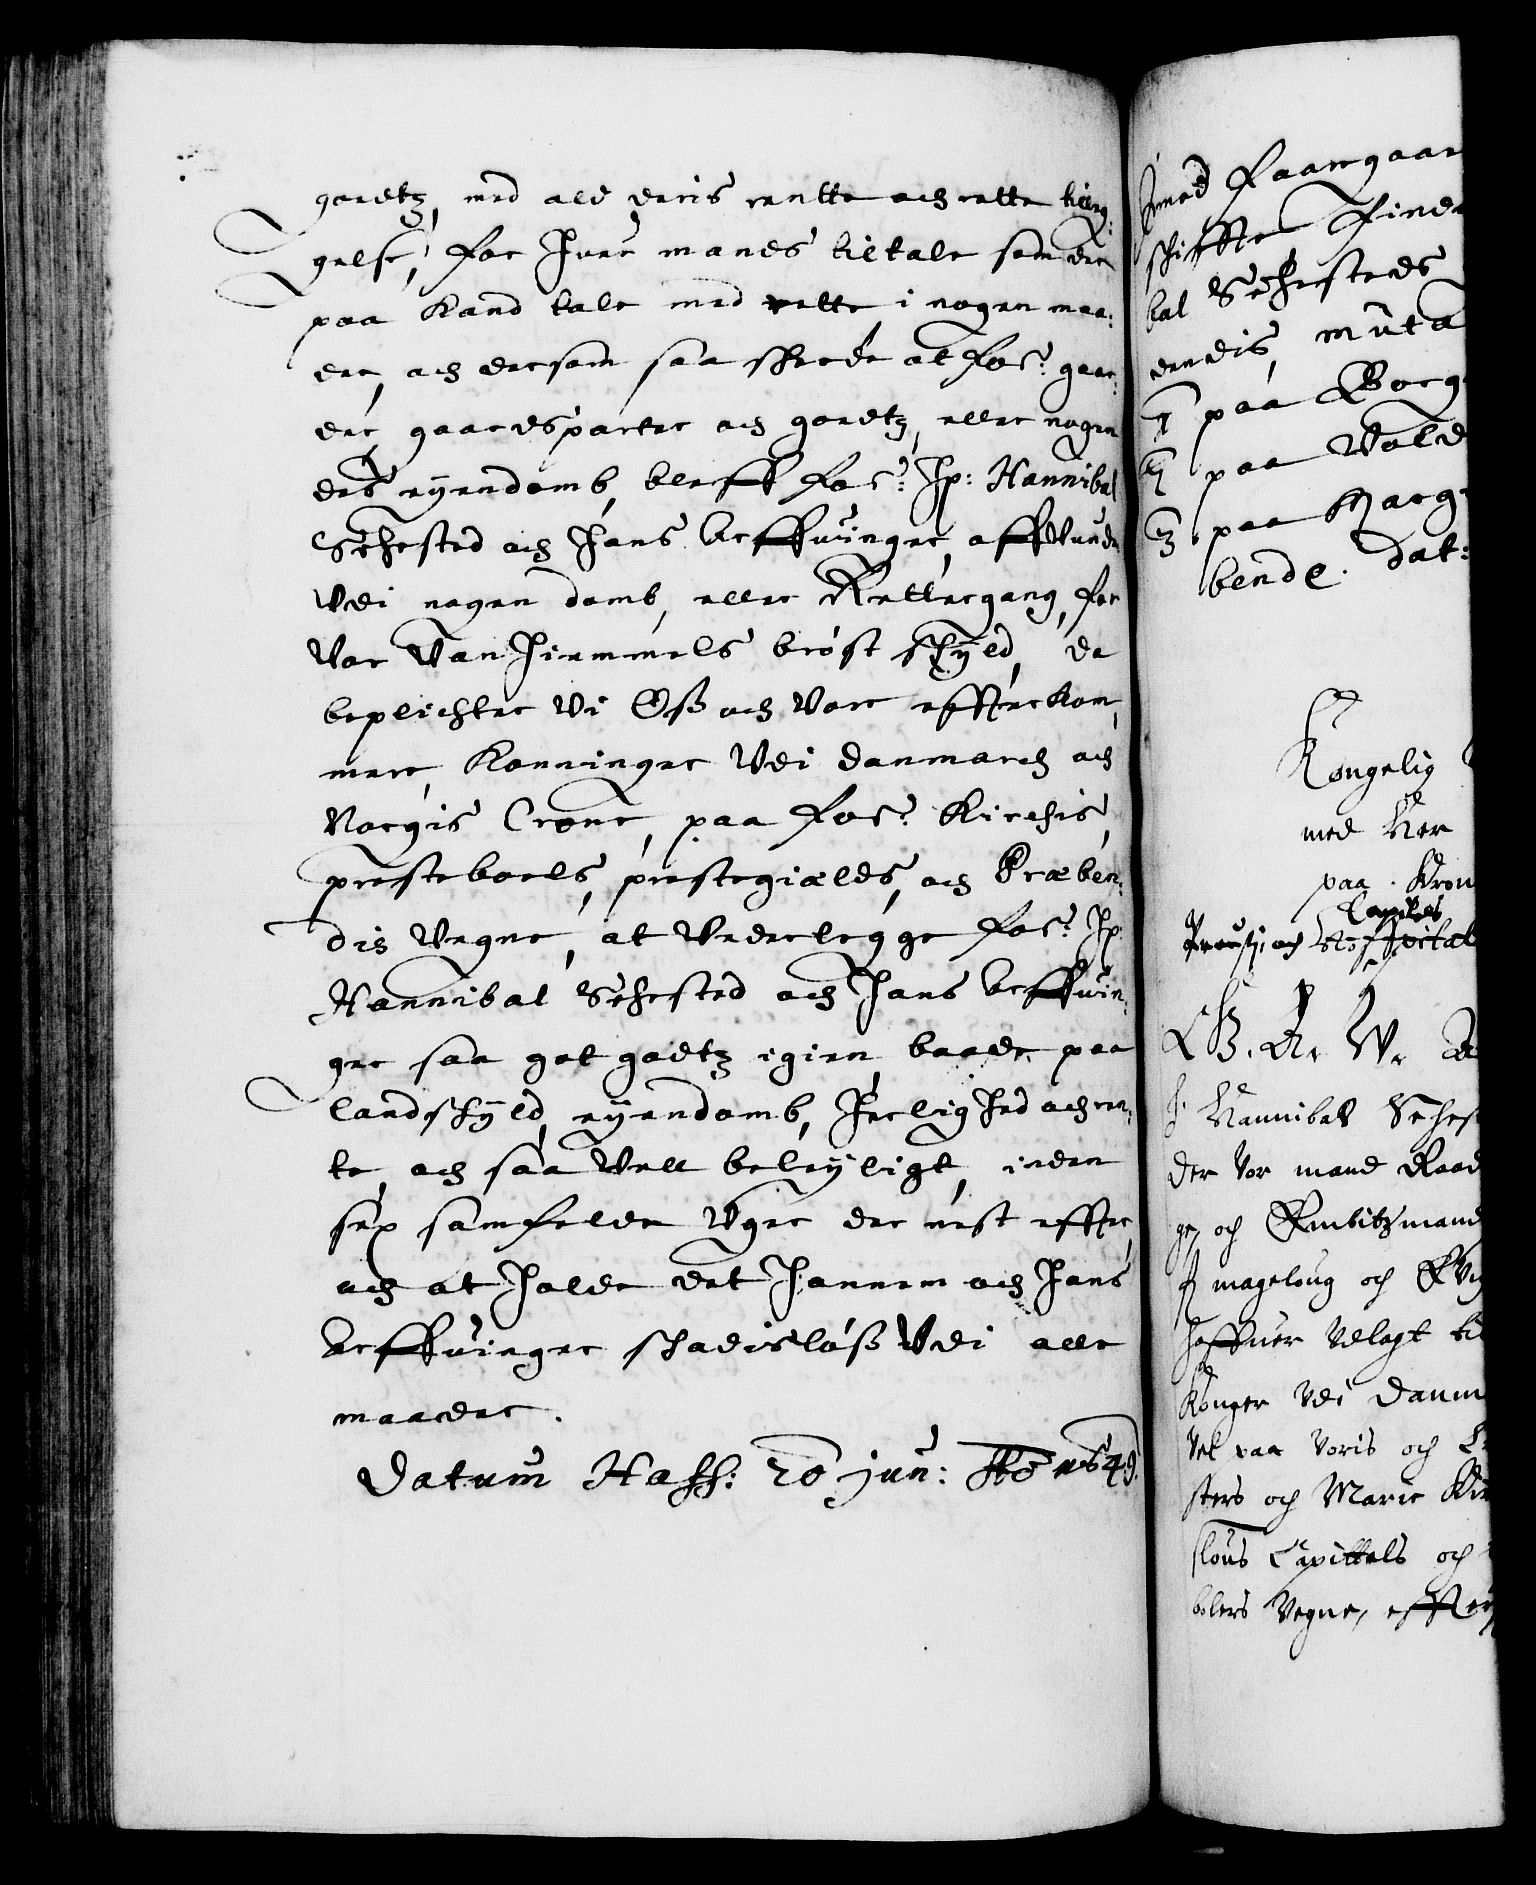 godtz, med ald deris rentte och rette tillig:
gelse, for huer mands tiltale som der
paa kand tale med rette i nogen maa:
der, och dersom saa skeede at for: gaar:
der, gaardsparter och godtz, eller nogen
des eyendomb, bleff for: Hr: Hannibal
Sehested och hans Arffuinger, affVunden
Vdi nogen domb, eller Rettergang, for
Vor VanHiemmels brøst skyld, da
beplichter Vi Oß och Vore effterkom,
mere, Konninger Vdi Danmarch och
Norgis Crone, paa for: Kirchis,
presteboels, prestegiælds, och Præben:
dis Vegne, at Vederlegge for: Hr:
Hannibal Sehested och Hans Arffuin:
ger saa got godtz igien, baade paa
landskyld, eyendomb, Herlighed och ren:
te, och saa Vell beleyligt, inden
sex samfelde Vger der nest effter,
och at holde det hannem och Hans
Arffuinger skadisløß Vdi alle
maader.
Datum Haff: 20 jun: Ao 1649.
med Faargaar
skiffte Finde
bal Sehesteds
dendis, muta
1 paa Borg
2 paa Vold
3 paa Marg
bende. dat:
Kongelig
med Her
paa Kron
Capitels
Proustj, och Hospital
G. A. W. A
H: Hannibal Sehest
der Vor mand Raad
ge, och Embitzmand
mageloug och
haffuer Vdlagt til
Konger Vdi Danm
Vel paa Voris och
sters och Marie Kir
slous Capittels och
bolers Vegne, effter